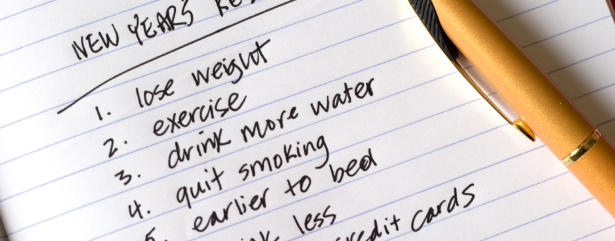 NEW YEARS
1. lose weight
2. exercise
3. drink more water
4. quit smoking
5. earlier to bed
less
credit cards